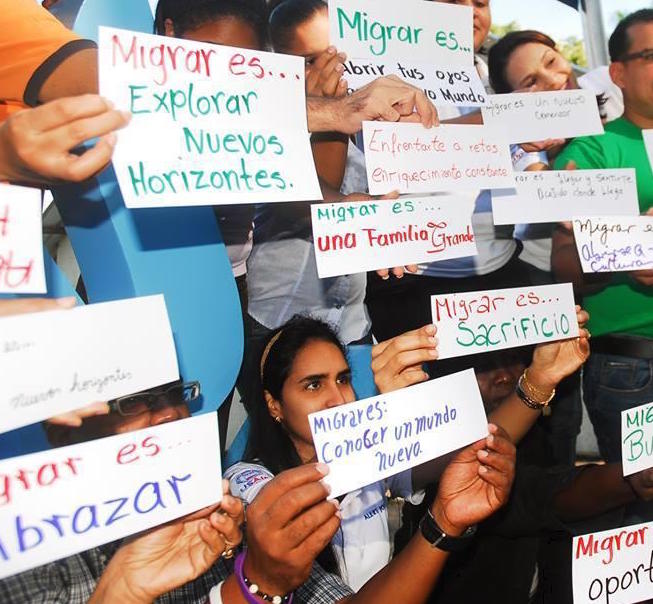 Migrar es...
Explorar
Nuevos
Horizontes.
Migrar es...
Abrir tus ojos
Mundo
Migrar es un nuevo
Comenzar
Enfrentarte a retos,
enriquecimiento constante
es llegar y sentirte
donde llega
Migrar es...
una Familia Grande
Migrar e
Abrirse a
cultura
Migrar es...
Sacrificio
es...
Nuevos horizontes
MIGRAR ES:
Conocer un mundo
nuevo.
grar es...
Abrazar
MIG
BU
Migrar
oport